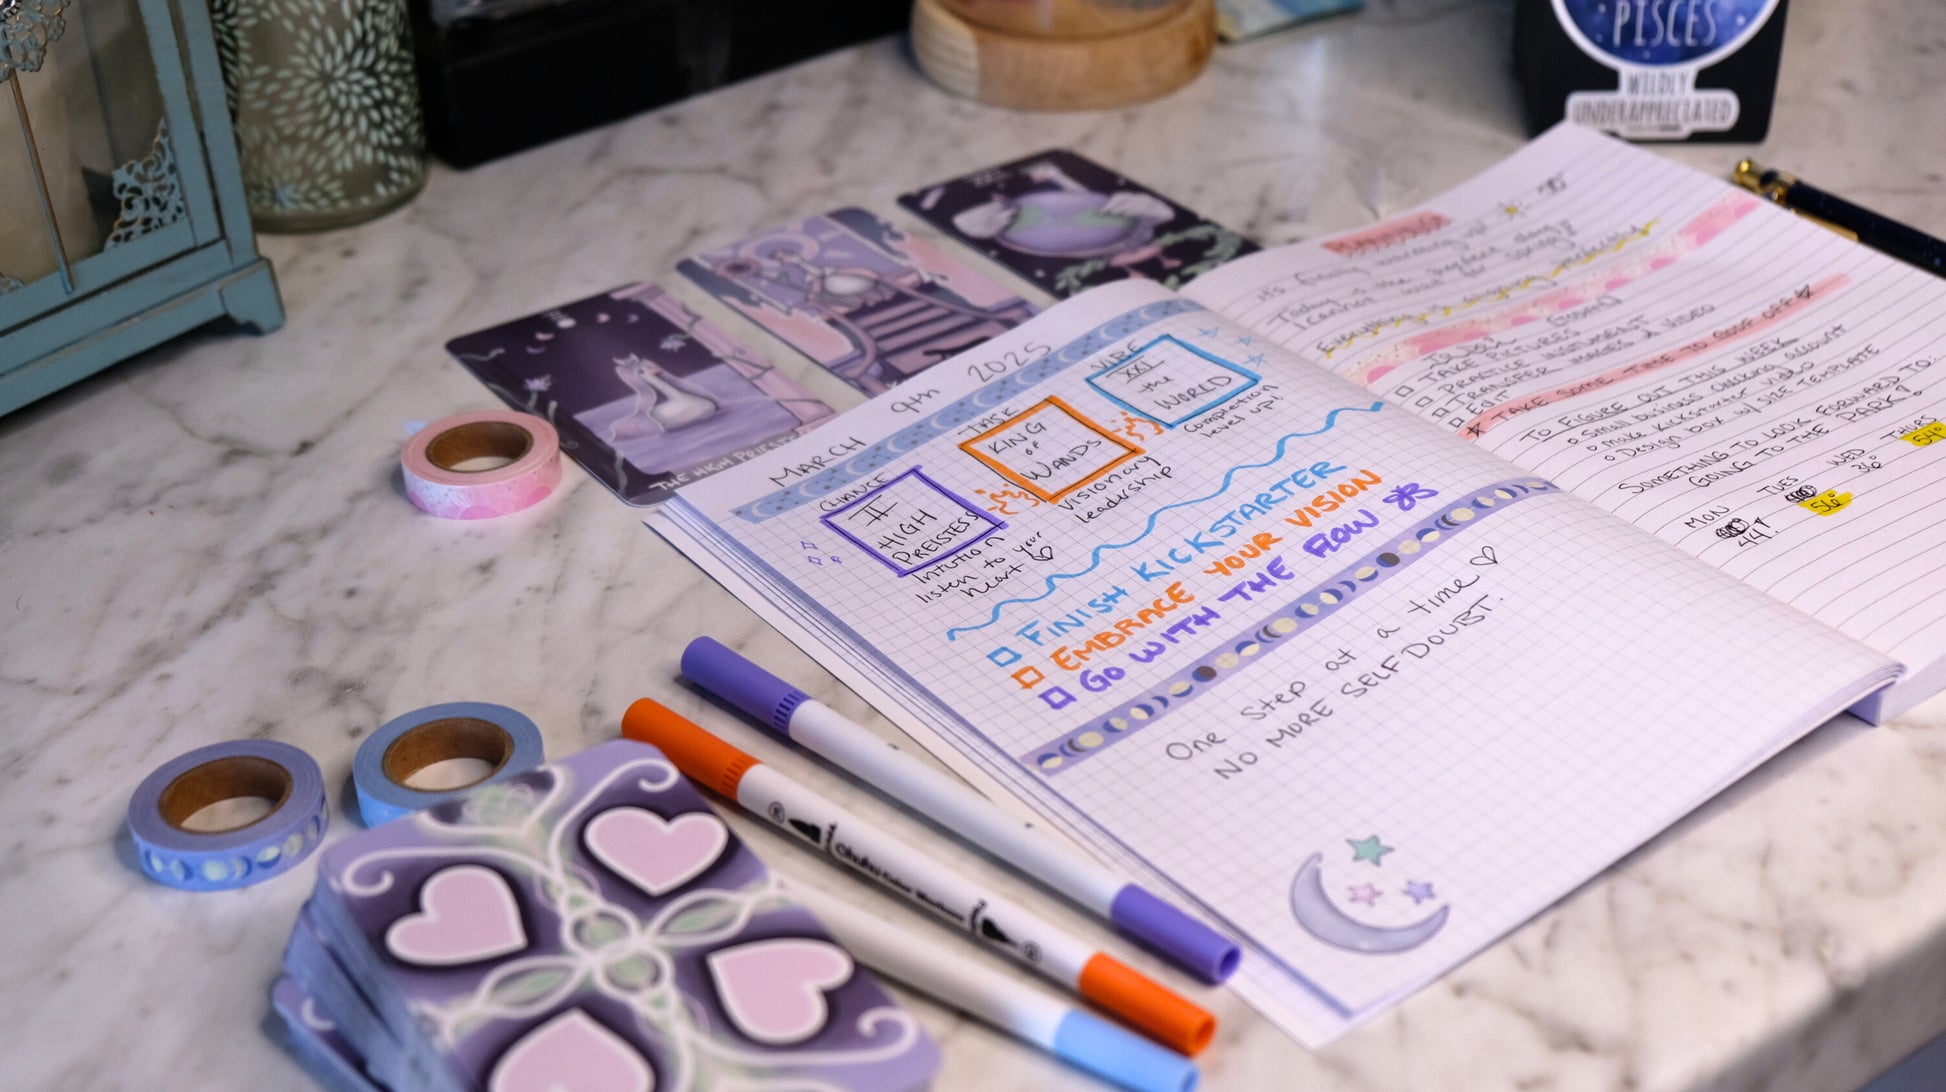 PISCES
WILDLY
UNDERAPPRECIATED
THE HIGH PRIESTESS
MARCH 9th 2025
CHANCE
II
HIGH
PREISTESS
Intution
listen to your
heart
TASK
KING
of
WANDS
Visionary
leadership
VIBE
XXI
the
WORLD
Completion
level up!
FINISH KICKSTARTER
EMBRACE YOUR VISION
GO WITH THE FLOW
One Step at a time
NO MORE SELF DOUBT.
it's finally warming up
Today is the day!
I cannot wait for
Everything is aligning perfectly
TO DO (TODAY)
TAKE PICTURES
PRACTICE
TRANSFER IMAGES & VIDEO
EDIT
TAKE SOME TIME TO GOOF OFF
TO FIGURE OUT THIS WEEK
Small business checking account
Make Kickstarter video
Design box w/ size TEMPLATE
SOMETHING TO LOOK FORWARD TO:
GOING TO THE PARK!
MON TUES WED THURS
44° 56° 36° 54°
Ohuhu Color Markers